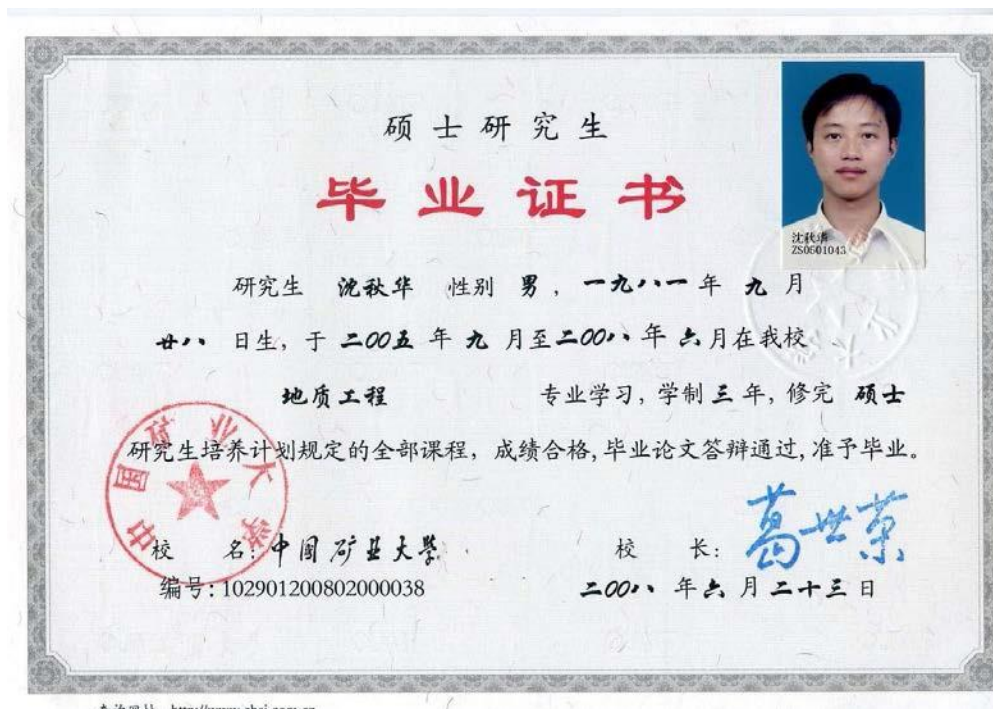 硕士研究生
毕业证书
沈秋华
ZS0501043
研究生 沈秋华 性别 男，一九八一年 九 月
廿八 日生，于 二00五 年 九 月至二00八 年 六月在我校
地质工程 专业学习，学制三年，修完 硕士
研究生培养计划规定的全部课程，成绩合格，毕业论文答辩通过，准予毕业。
中国矿业大学
校 名：中国矿业大学 校 长：葛世荣
编号：102901200802000038 二00八 年六 月二十三日